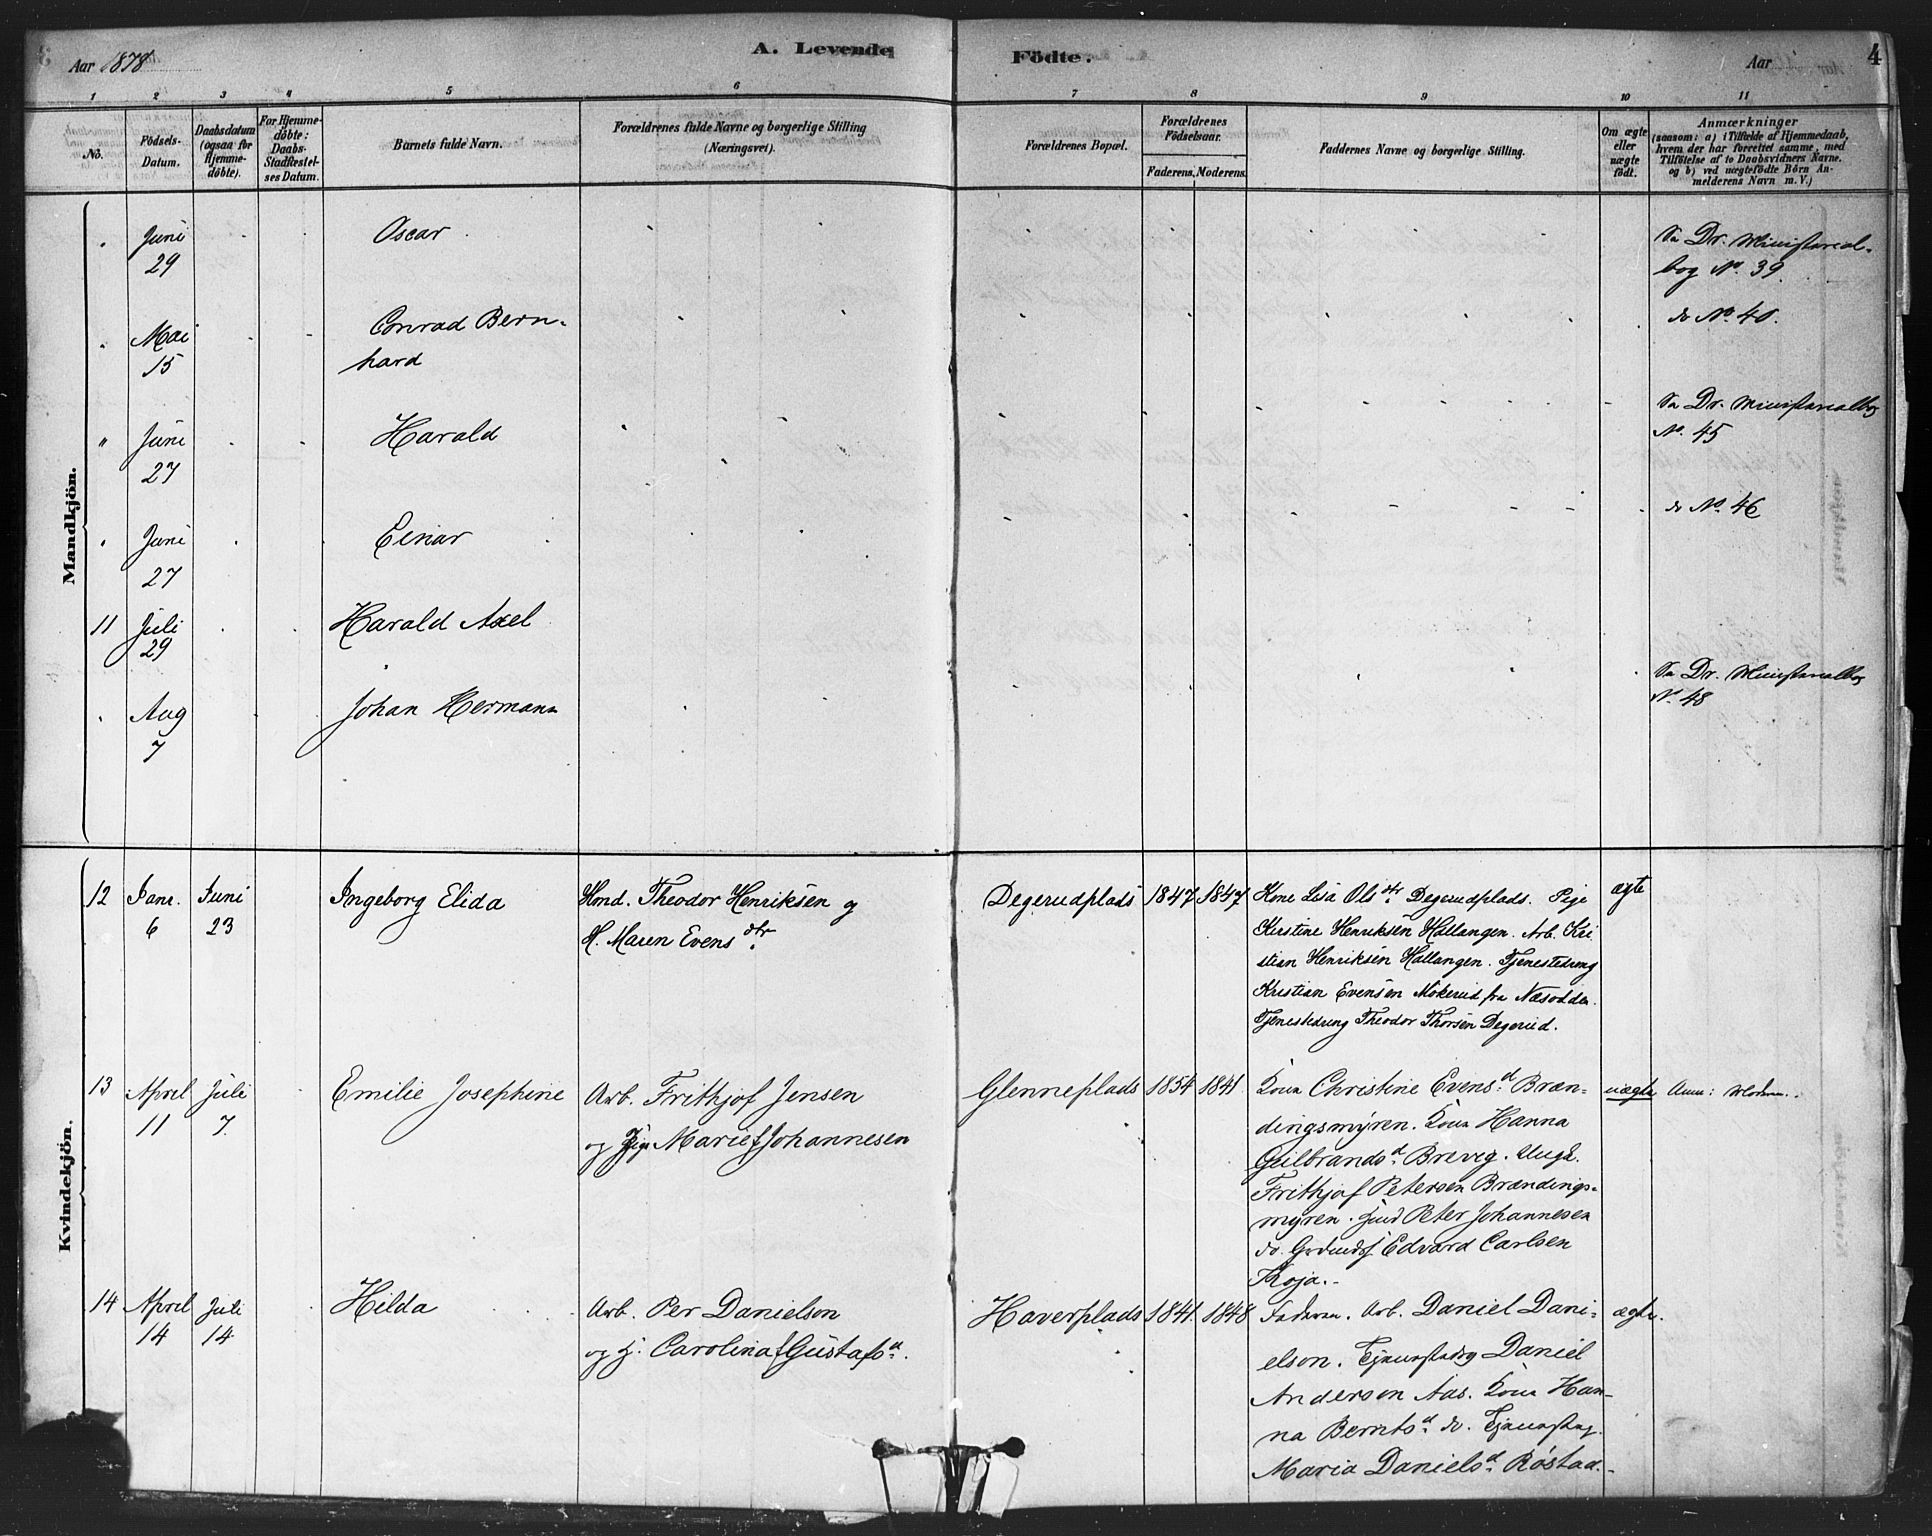 Aar 1878
A. Levende Födte.
Aar
4
1 2 3 4 5 6 7 8 9 10 11
No.
Födsels-
Datum.
Daabsdatum
(ogsaa for
Hjemme-
döbte).
For Hjemme-
döbte:
Daabs-
Stadfæstel-
ses Datum.
Barnets fulde Navn.
Forældrenes fulde Navne og borgerlige Stilling
(Næringsvei).
Forældrenes Bopæl.
Forældrenes
Födselsaar.
Faderens. Moderens.
Faddernes Navne og borgerlige Stilling.
Om ægte
eller
uægte
födt.
Anmærkninger
(saasom: a) i Tilfælde af Hjemmedaab,
hvem der har forrettet samme, med
Tilföielse af to Daabsvidners Navne.
og b) ved uægtefödte Börn An-
melderens Navn m. V.)
Mandkjön.
Juni
29
Oscar
Dr. Ministerial-
bog No. 39.
Mai
15
Conrad Bern-
hard
do No. 40.
" Juni
27
Harald
Dr. Ministerialbog
No. 45
Juni
27
Einar
do No. 46
11 Juli
29
Harald Axel
Aug
7
Johan Hermann
Dr. Ministerialbog
No. 48
Kvindekjön.
12 Janr.
6
Juni
23
Ingeborg Elida
Hmd. Theodor Henriksen og
H. Maren Evensdtr.
Degerudplads 1847 1847
Kone Lisa Olsdtr. Degerudplads. Pige
Kirstine Henriksen Hallangen. Arb. Kri
stian Henriksen Hallangen. Tjenestedreng
Kristian Evensen Mokerud fra Næsodden.
Tjenestedreng Theodor Thorsen Degerud.
ægte
13 April
11
Juli
7.
Emilie Josephine
Arb. Frithjof Jensen
og Pige Marie Johannesen
Glenneplads 1854 1841
Kone Christine Evensd. Bræn-
dingsmyren. Kone Hanna
Gulbrandsd. Brevig. Ungk.
Frithjof Petersen Brændings-
myren. Peter Johannesen
do. Edvard Carlsen
Troja.
uægte Anm: Moderen.
14 April
14
Juli
14
Hilda
Arb. Per Danielson
og H. Carolina Gustafsd.
Haverplads 1841. 1848
Faderen. Arb. Daniel Dani-
elson. Daniel
Andersen Aas. Kone Han-
na Berntsd. do.
Maria Danielsd. Röstad.
ægte.